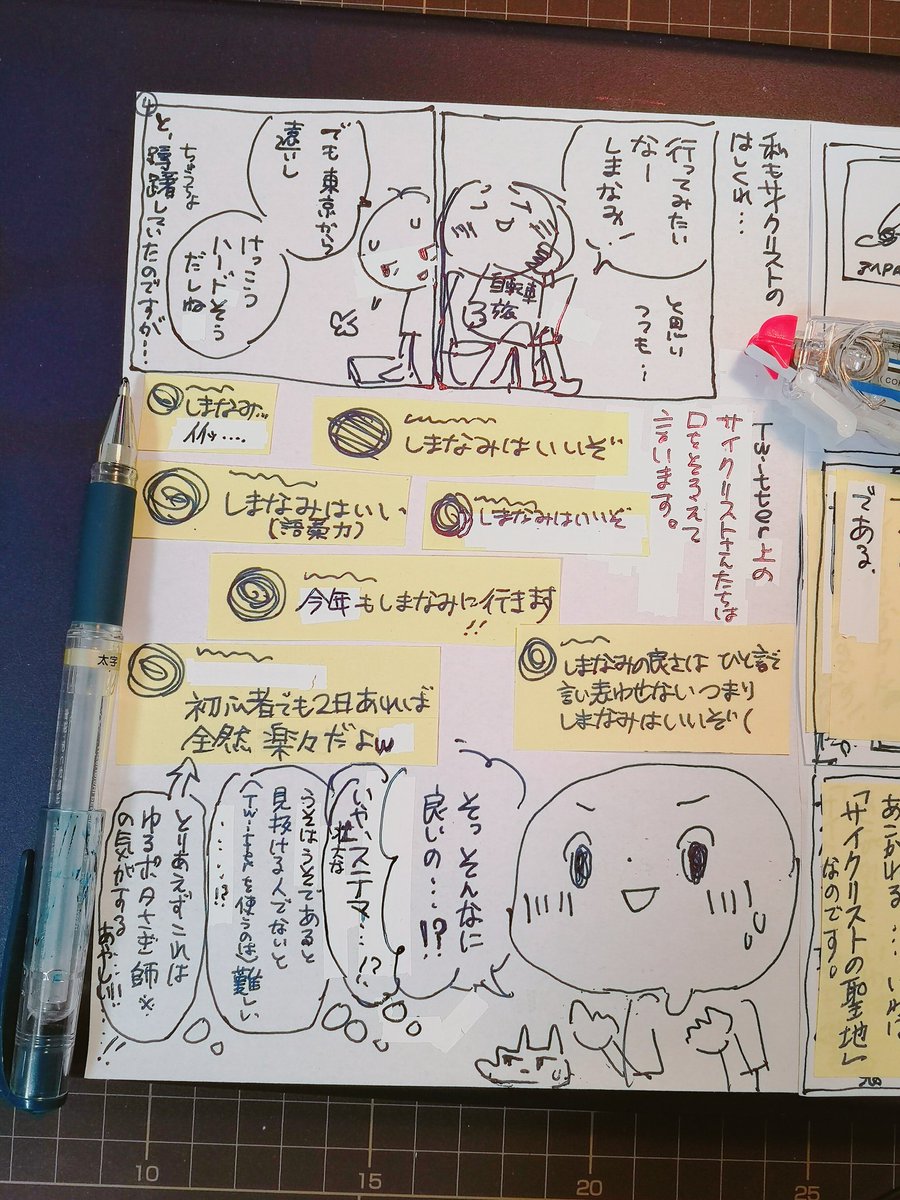 私もサイクリストの
はしくれ…
行ってみたい
なー
しまなみ!
と思い
つつも…
自転車
旅
④
でも東京から
遠いし
けっこう
ハードそう
だしね
ちゅうちょ
と、躊躇していたのですが…
Twitter上の
サイクリストさんたちは
口をそろえて
言います。
しまなみはいいぞ
しまなみ…
イイッ….
しまなみはいいぞ
しまなみはいい
(語彙力)
今年もしまなみに行きます
!!
しまなみの良さは ひと言で
言い表わせない つまり
しまなみはいいぞ(
初心者でも2日あれば
全然 楽々だよw
そっ そんなに
良いの…!?
いや、ステマ…!?
壮大な
うそはうそであると
見抜ける人でないと
(Twitterを使うのは)難しい
・・・・!?
とりあえずこれは
ゆるポタさぎ師※
の気がする
あやしい…!!
JAPA
である。
あこがれる…いわば
「サイクリストの聖地」
なのです。
太字
10
15
20
25